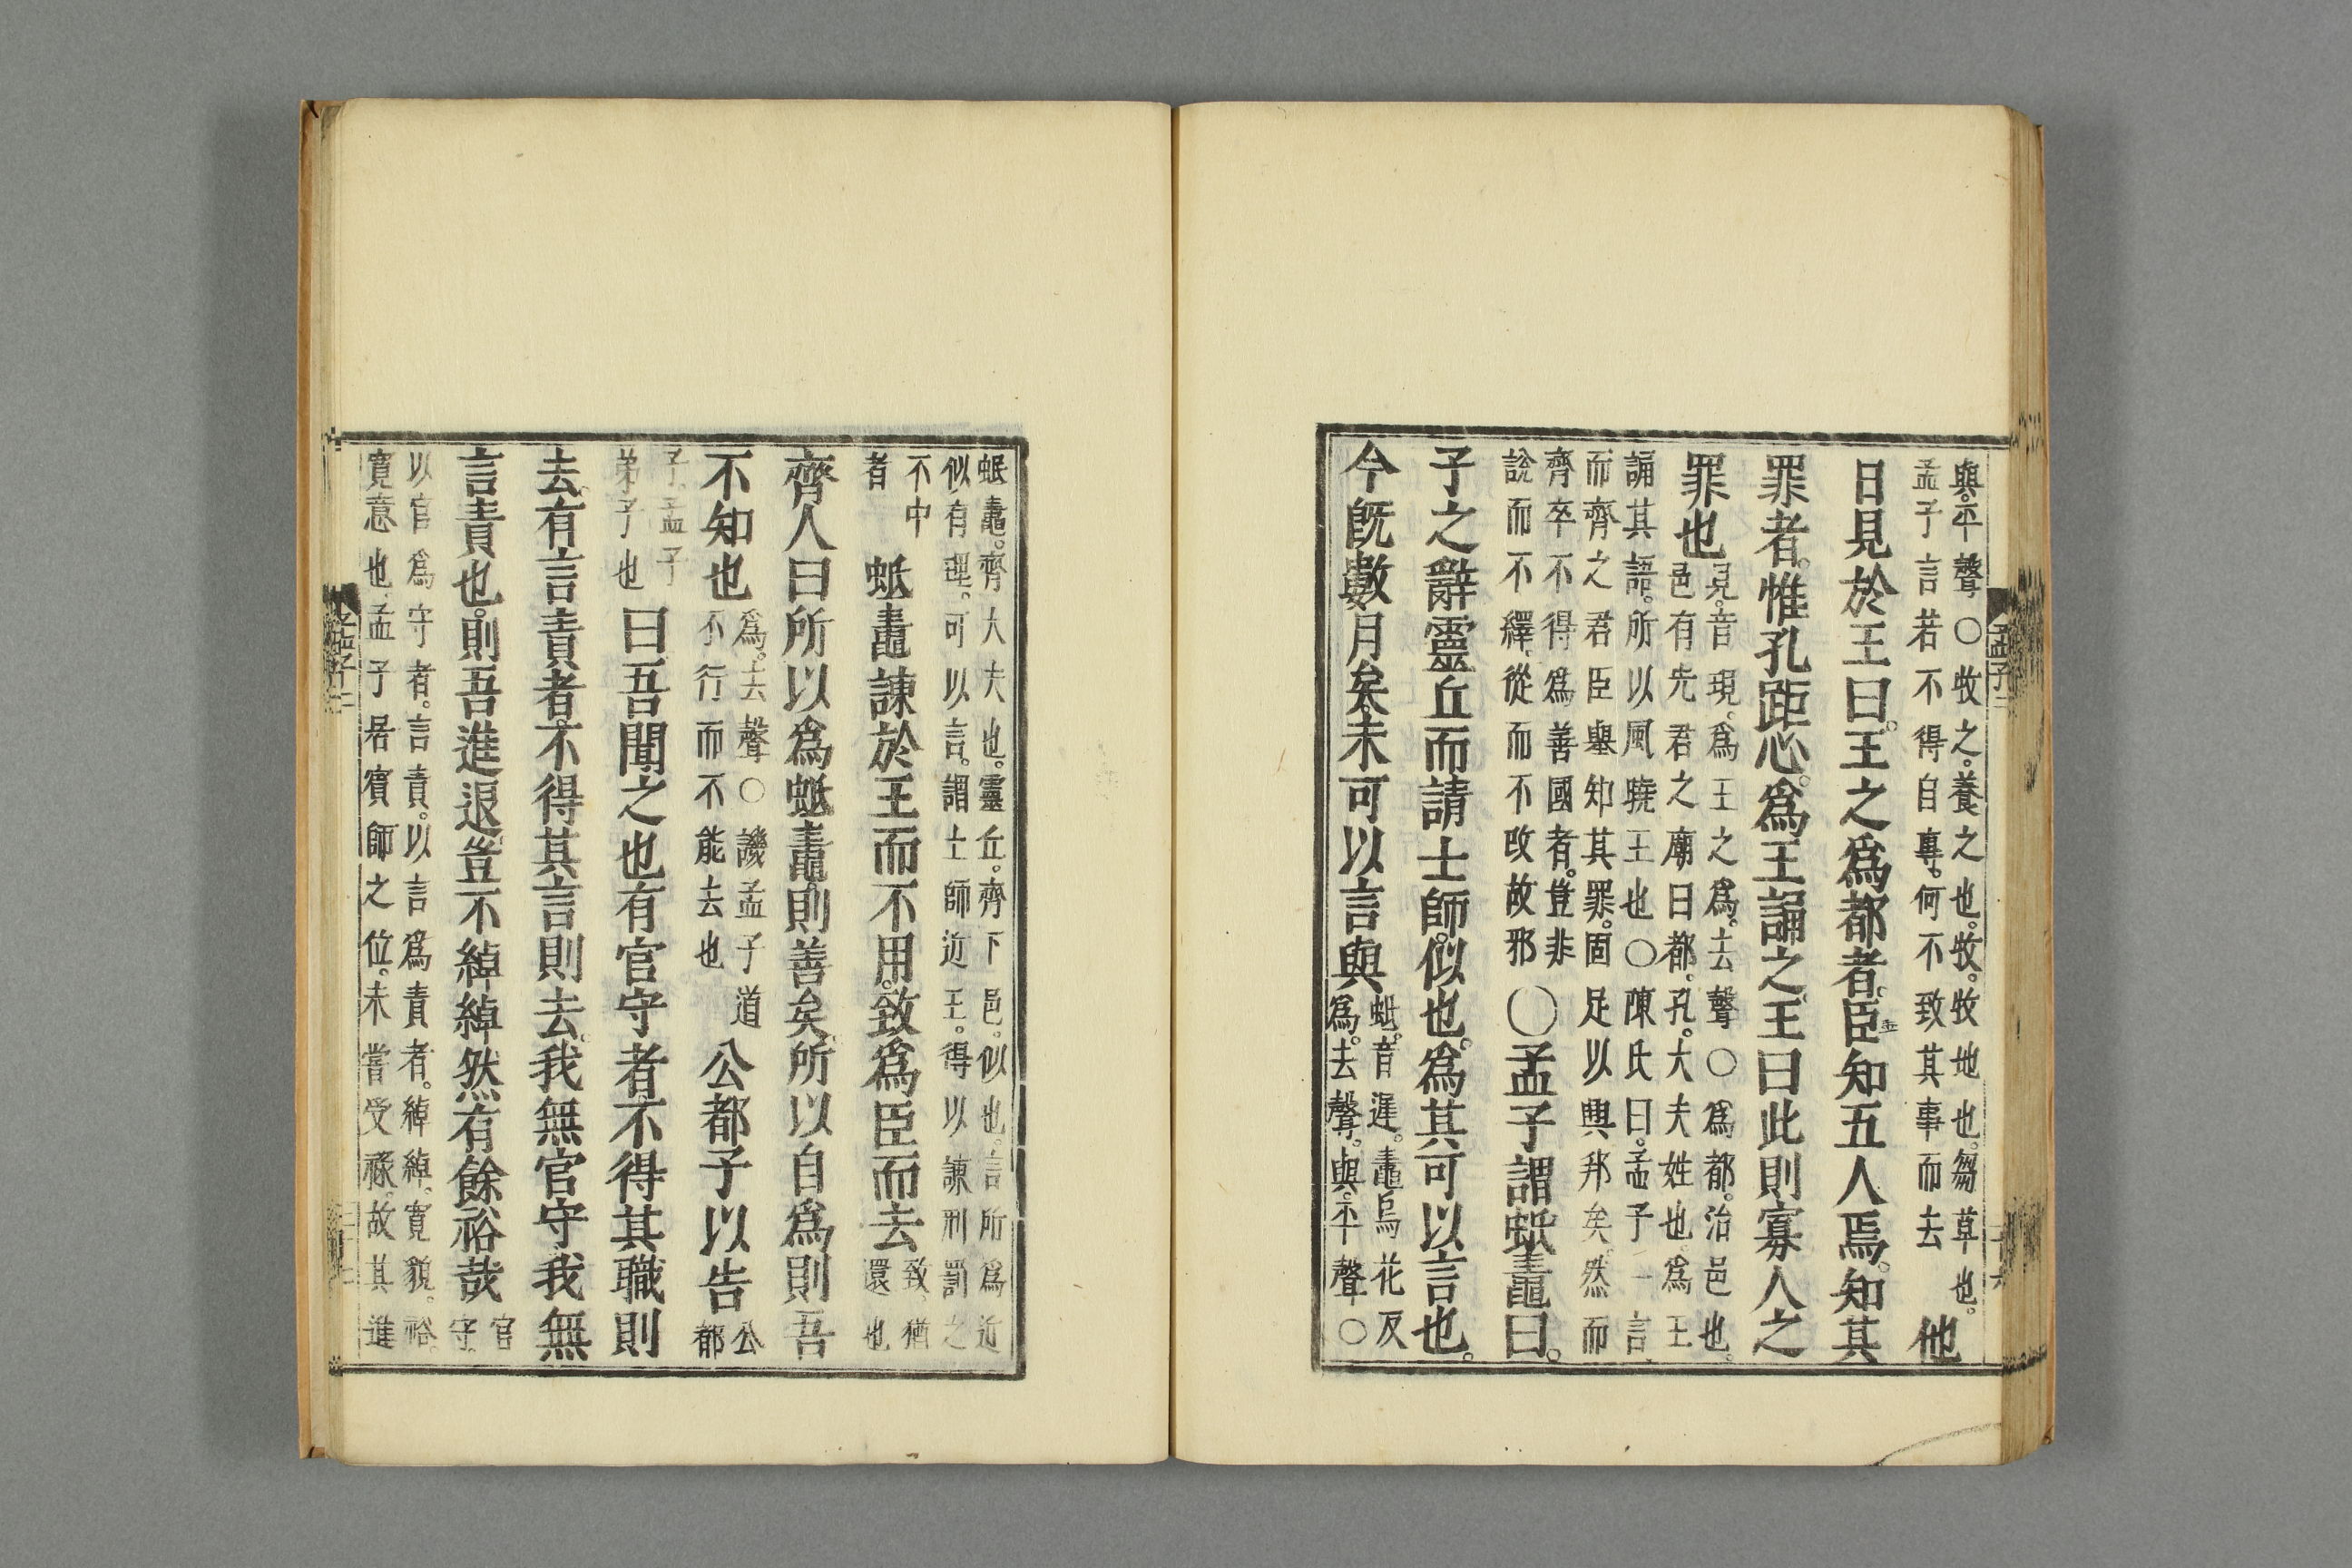 與平聲○牧之養之也牧牧地也芻草也
孟子言若不得自專何不致其事而去
他
日見於王曰王之爲都者臣知五人焉知其
罪者惟孔距心爲王誦之王曰此則寡人之
罪也
見音現爲王之爲去聲○爲都治邑也
邑有先君之廟曰都孔大夫姓也爲王
誦其語所以風曉王也○陳氏曰孟子一言
而齊之君臣擧知其罪固足以興邦矣然而
齊卒不得爲善國者豈非
說而不繹從而不改故邪
○孟子謂蚳鼃曰
子之辭靈丘而請士師似也爲其可以言也
今旣數月矣未可以言與
蚳音遲鼃烏花反
爲去聲與平聲○
蚳鼃齊大夫也靈丘齊下邑似也言所爲近
似有理可以言謂士師近王得以諫刑罰之
不中
者
蚳鼃諫於王而不用致爲臣而去
致猶
還也
齊人曰所以爲蚳鼃則善矣所以自爲則吾
不知也
爲去聲○譏孟子道
不行而不能去也
公都子以告
公都
子孟子
弟子也
曰吾聞之也有官守者不得其職則
去有言責者不得其言則去我無官守我無
言責也則吾進退豈不綽綽然有餘裕哉
官
守
以官爲守者言責以言爲責者綽綽寬貌裕
寬意也孟子居賓師之位未嘗受祿故其進
孟子二